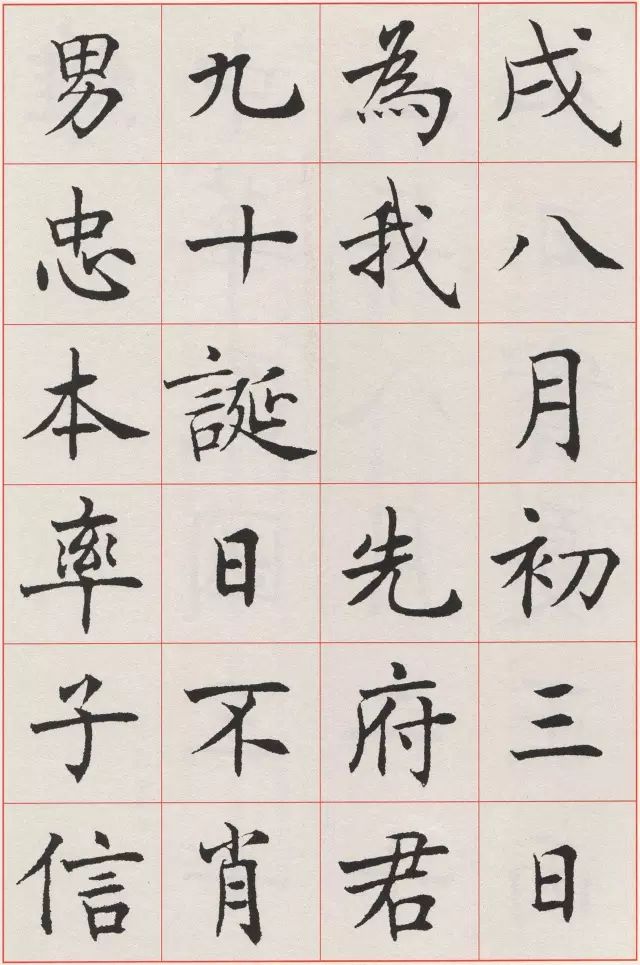 戌八月初三日
為我　先府君
九十誕日不肖
男忠本率子信